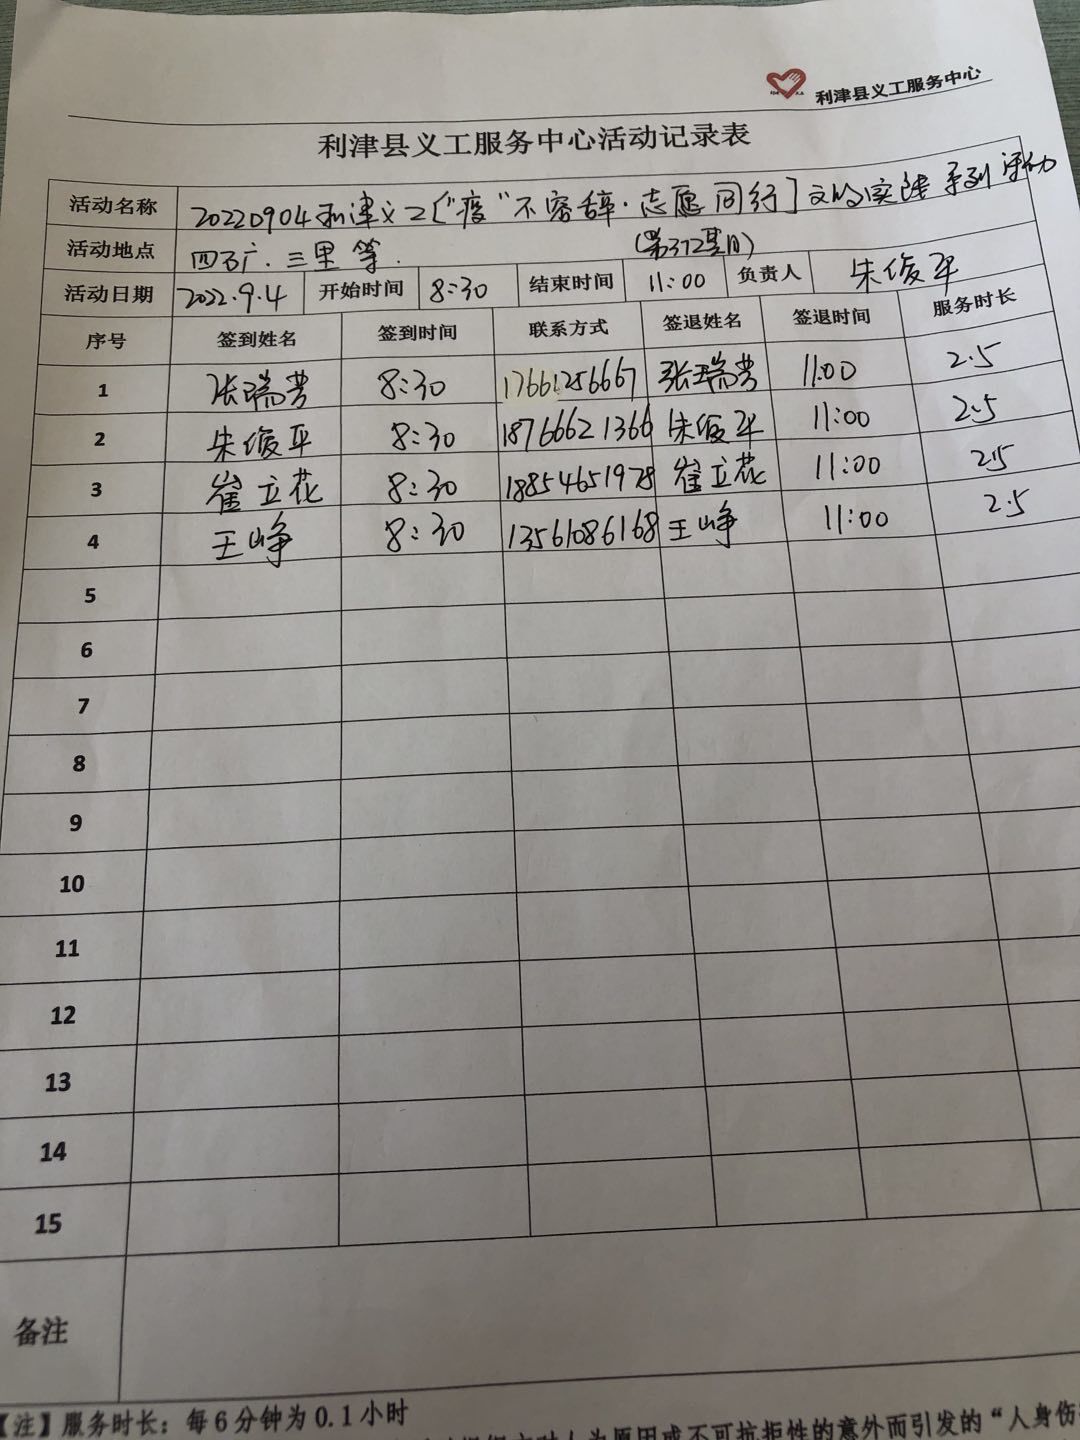 利津县义工服务中心
利津县义工服务中心活动记录表
活动名称 20220904利津义工["疫"不容辞·志愿同行]文明实践系列活动
(第372期)
活动地点 四百广.三里等.
活动日期 2022.9.4 开始时间 8:30 结束时间 11:00 负责人 朱俊平
序号 签到姓名 签到时间 联系方式 签退姓名 签退时间 服务时长
1 张瑞芳 8:30 17661256667 张瑞芳 11:00 2.5
2 朱俊平 8:30 18766621366 朱俊平 11:00 2.5
3 崔立花 8:30 18854651978 崔立花 11:00 2.5
4 王峥 8:30 13561086168 王峥 11:00 2.5
5
6
7
8
9
10
11
12
13
14
15
备注
【注】服务时长：每6分钟为0.1小时
人为原因或不可抗拒性的意外而引发的“人身伤